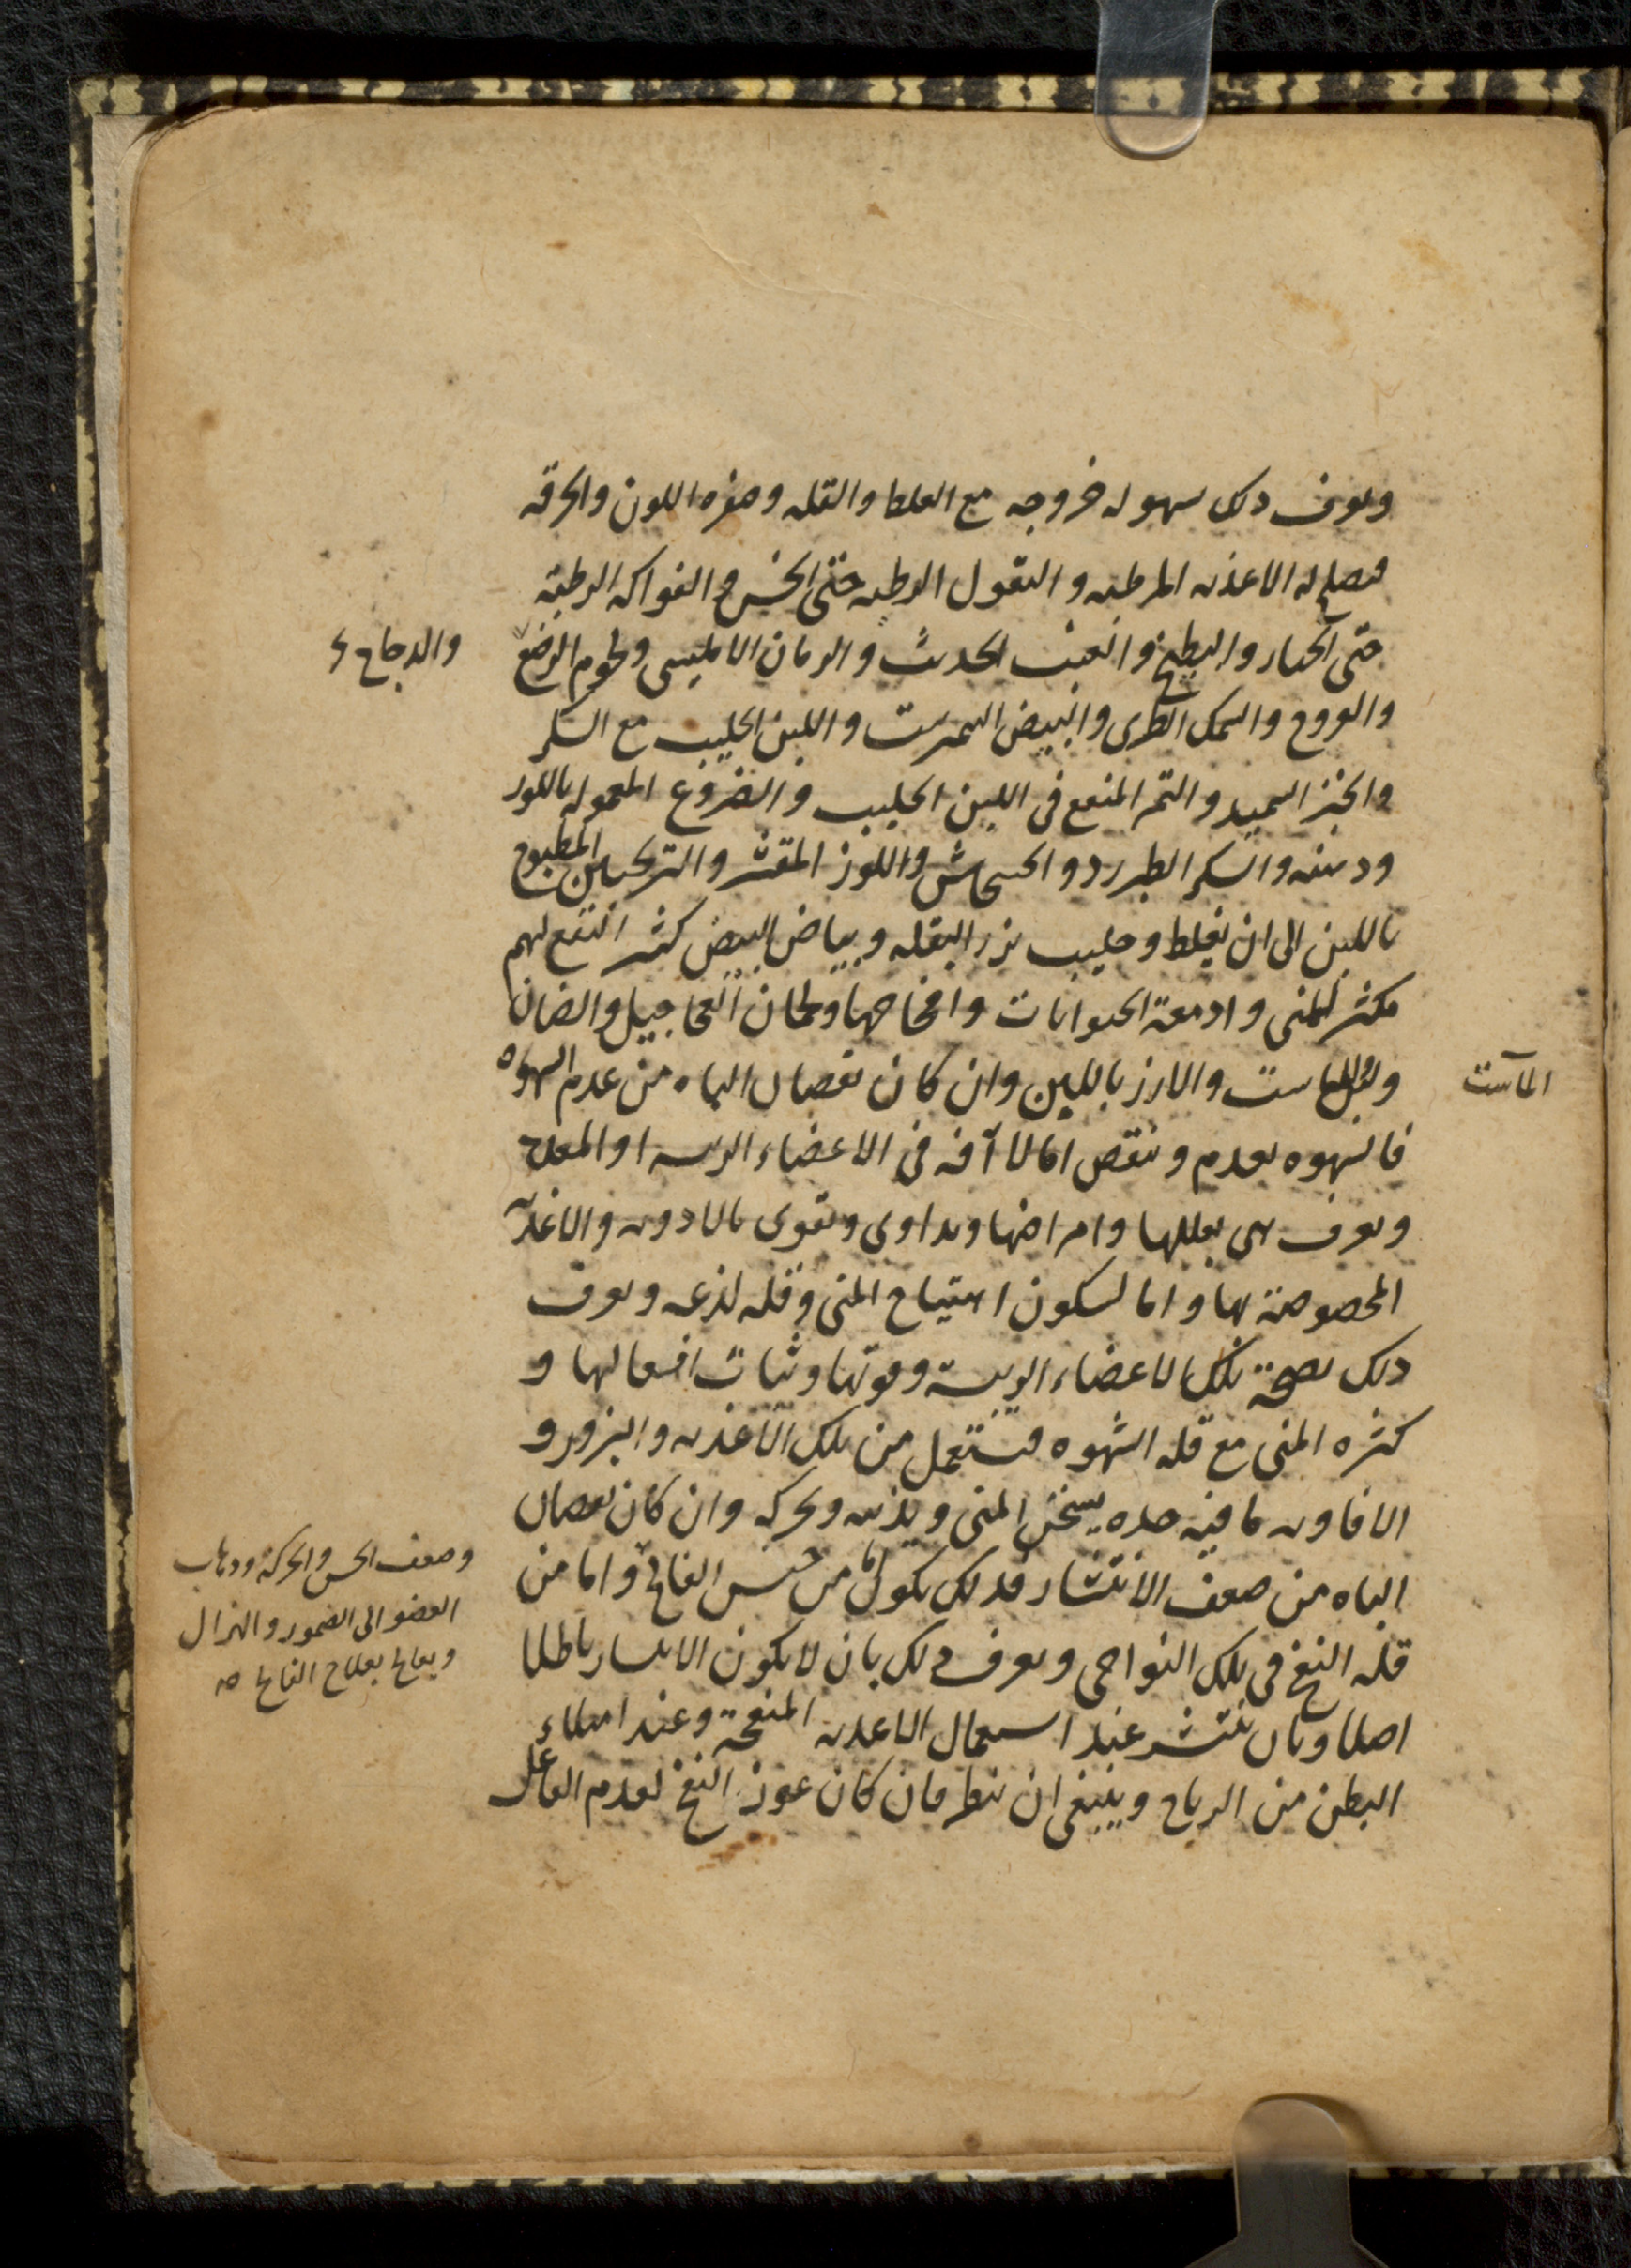 ويعرف ذلك بسهولة خروجه مع الغلظ والقلة وصفرة اللون والحرقة
فيصلح له الاغذية المرطبة والبقول الرطبة حتى الخس والفواكه الرطبة
حتى الخيار والبطيخ والعنب الحديث والرمان الامليسى ولحوم الرضع
والدجاج
والفروج والسمك الطرى والبيض النيمرشت واللبن الحليب مع السكر
والخبز السميد والتمر المنقع فى اللبن الحليب والمعمولة باللوز
ودهنه والسكر الطبرزد والخشخاش واللوز المقشر والترنجبين المطبوخ
باللبن الى ان يغلظ وحليب بزر البقلة وبياض البيض كثير النفع لهم
مكثر للمنى وادمغة الحيوانات وامخاخها ولحمان العجاجيل والضان
والماست والارز باللبن وان كان نقصان الباه من عدم الشهوة
الماست
فالشهوة تعدم وتنقص اما لآفة فى الاعضاء الرئيسة او المعدة
ويعرف هى بعللها وامراضها وتداوى وتقوى بالادوية والاغذية
المخصوصة بها واما لسكون اهتياج المنى وقلة لذعه ويعرف
ذلك بصحة تلك الاعضاء الرئيسة وقوتها وثبات افعالها و
كثرة المنى مع قلة الشهوة فيستعمل من تلك الاغذية والبزور و
الافاويه ما فيه حدة يسخن المنى ويذيبه ويحركه وان كان نقصان
الباه من ضعف الانتشار فذلك يكون اما من جنس الفالج واما من
وضعف الحس والحركة وذهاب
العضو الى الضمور والهزال
ويعالج بعلاج الفالج صح
قلة النفخ فى تلك النواحى ويعرف ذلك بان لا يكون الانتشار باطلا
اصلا وبان ينتشر عند استعمال الاغذية المنفخة وعند امتلاء
البطن من الرياح وينبغى ان ينظر فان كان عوز النفخ لعدم الفاعل